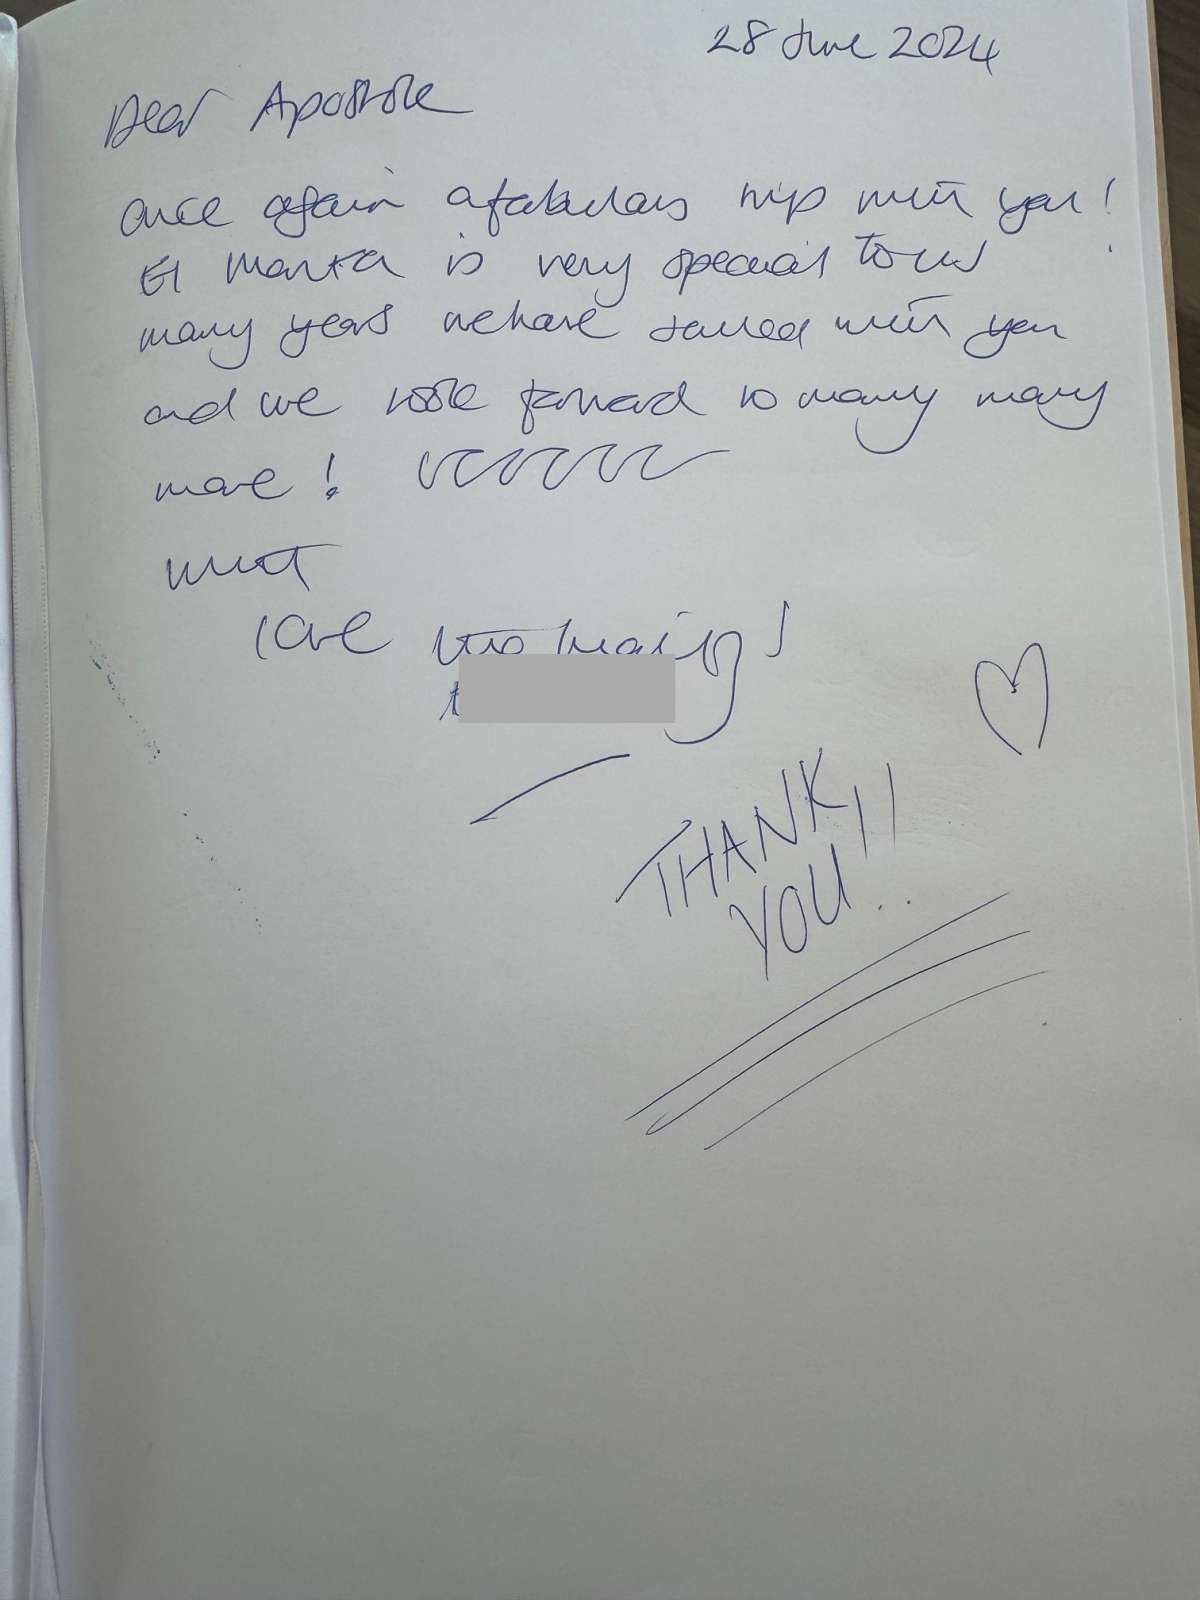 28 June 2024
Dear Apostole
once again a fabulous trip with you!
El Manta is very special to us
many years we have sailed with you
and we look forward to many many
more!
with
love
THANK
YOU!!